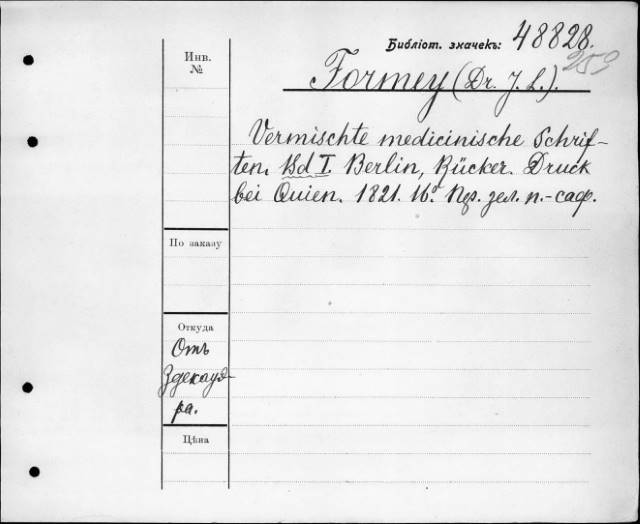 Библіот. значекъ: 48828.
253
Инв.
№
Formey (Dr. J. L.).
Vermischte medicinische Schrif-
ten. Bd I. Berlin, Rücker. Druck
bei Quien. 1821. 16º. Кр. зел. п.-саф.
По заказу
Откуда
Отъ
Здекауэ-
ра.
Цѣна